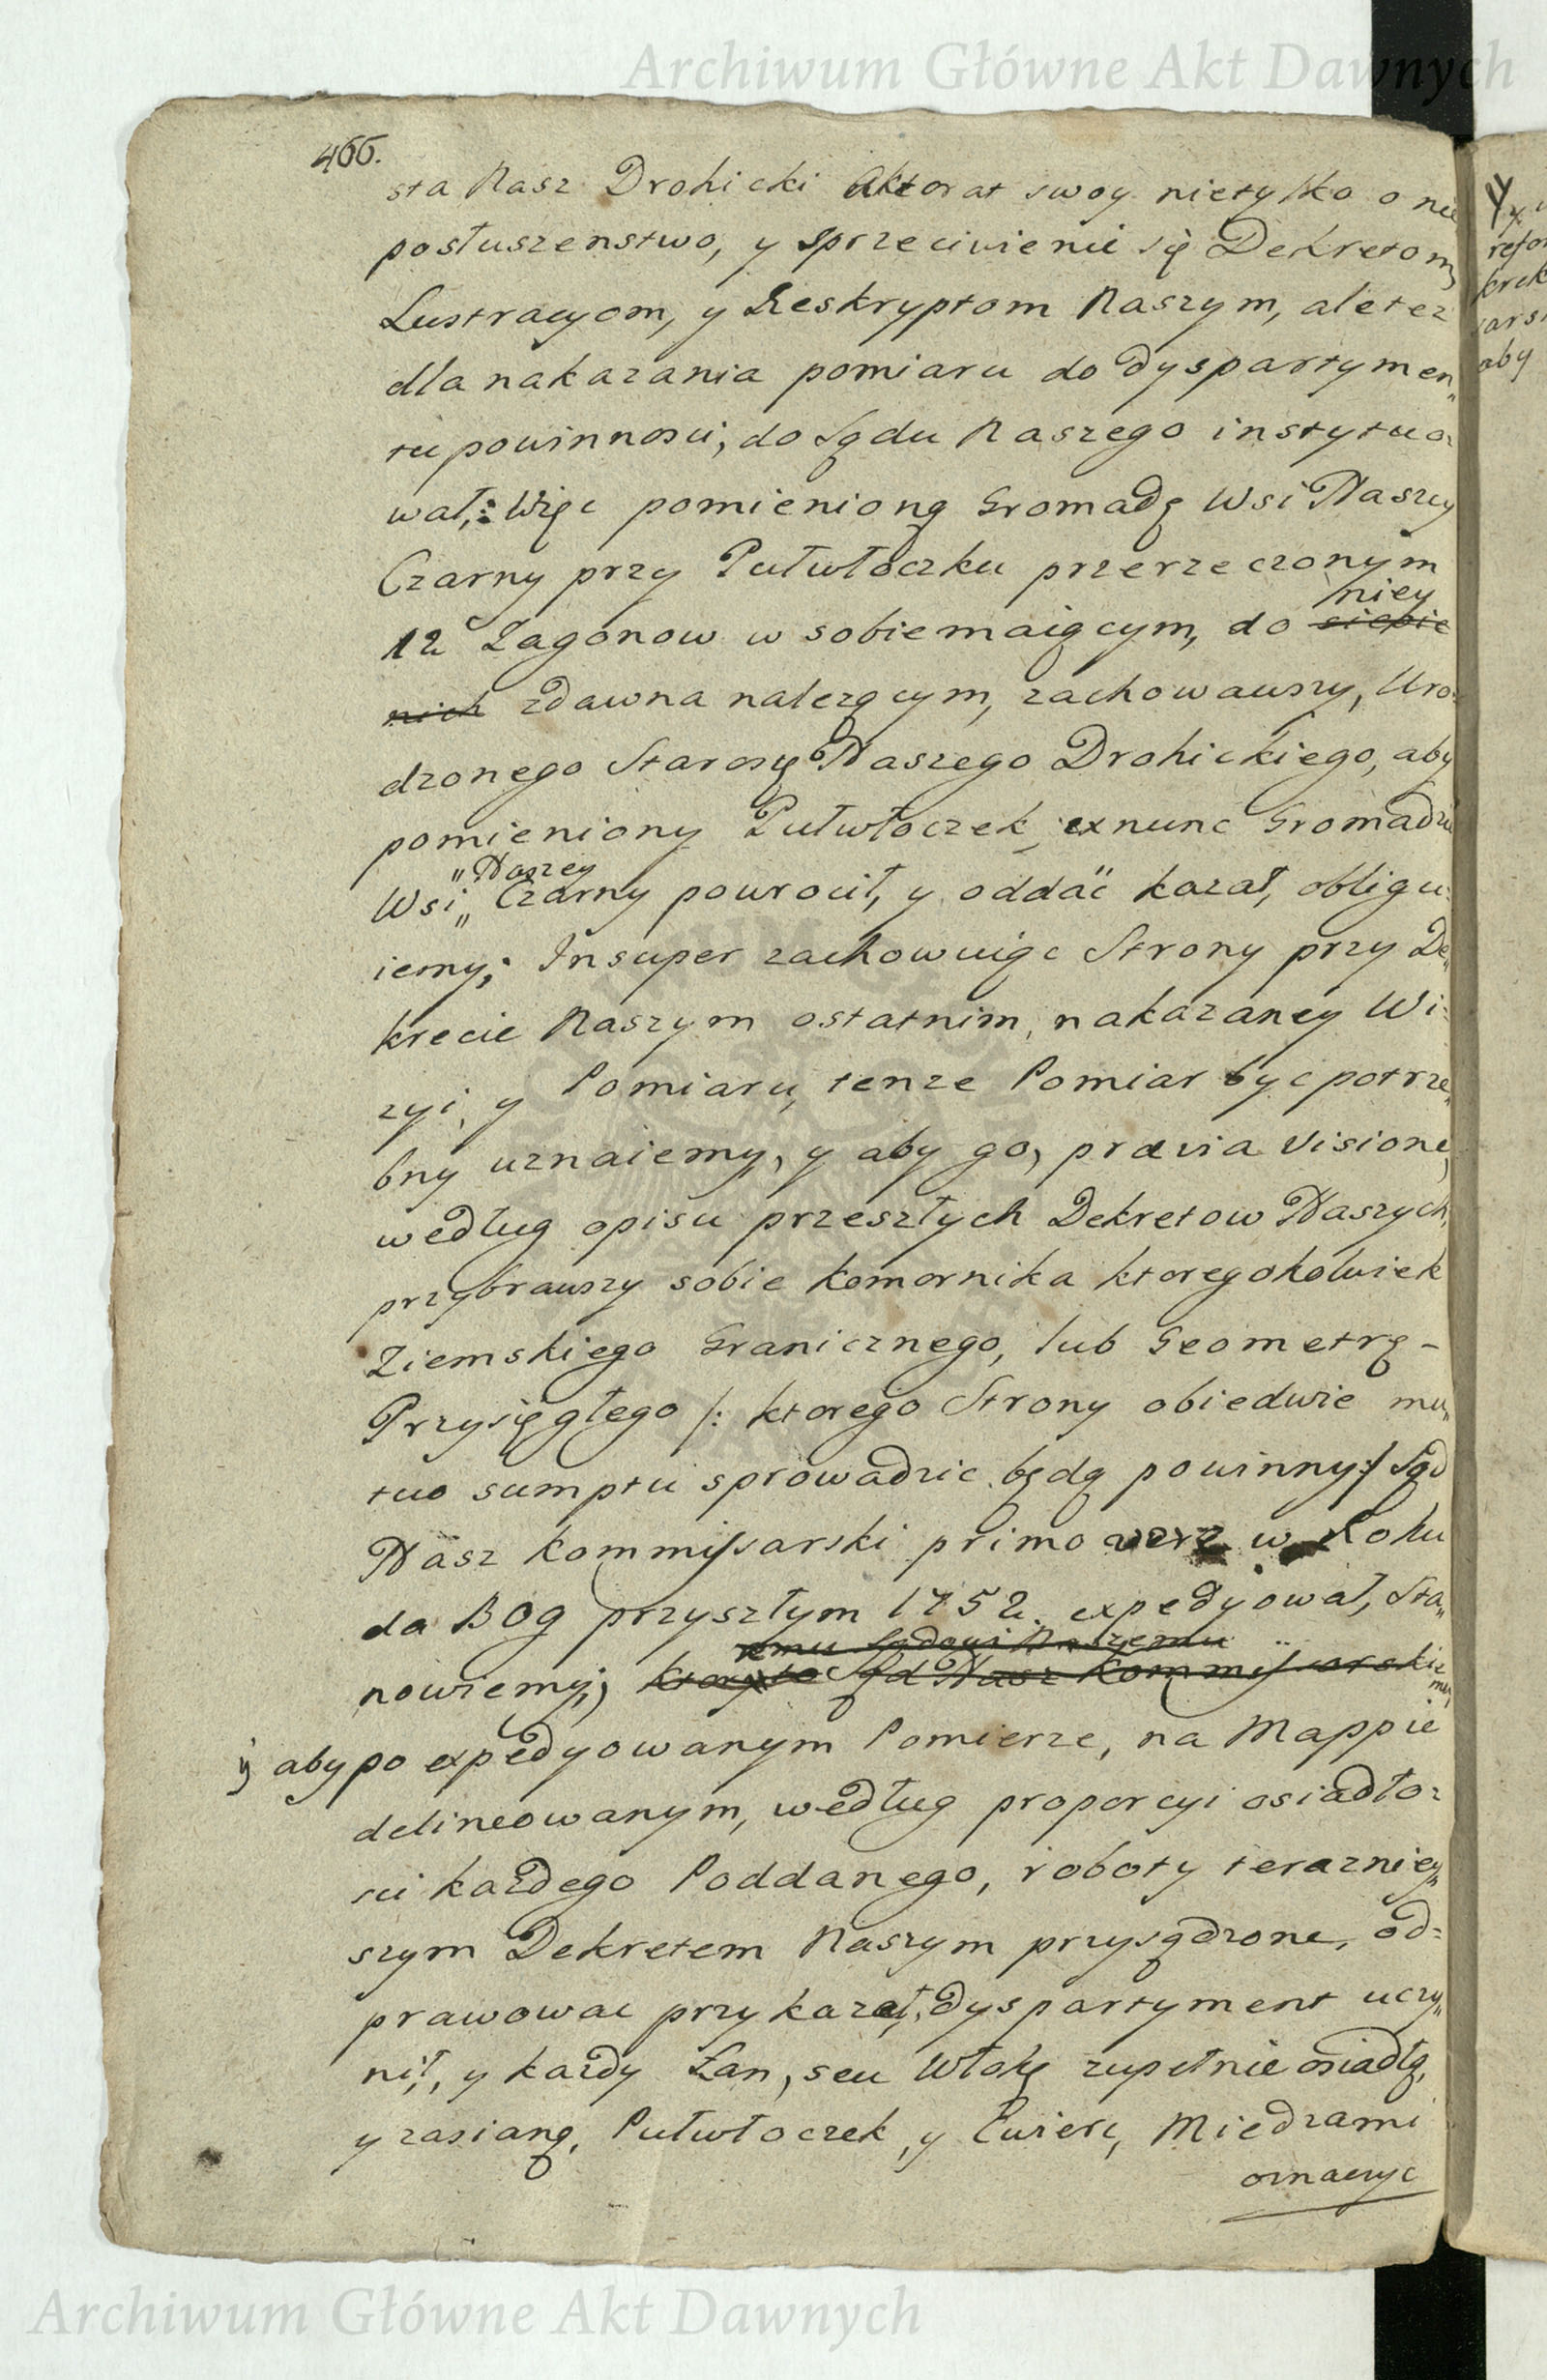 Archiwum Główne Akt Dawnych
466.
sta Nasz Drohicki Aktorat swoy nietylko o nie
posłuszenstwo, y sprzeciwienie się Dekretom,
Lustracyom, y Reskryptom Naszym, ale tez
dla nakazania pomiaru do dyspartymen„
tu powinnosci, do Sądu Naszego instytuo=
wał; Więc pomienioną Gromadę Wsi Naszey
Czarny przy Pułwłoczku przerzeczonym
niey
12 Zagonow w sobie maiącym, do siebie
nich zdawna nalezącym, zachowawszy, Uro=
dzonego Starosę Naszego Drohickiego, aby
pomieniony Pułwłoczek, exnunc Gromadzie
„Naszey
Wsi„ Czarny powrocił, y oddać kazał, obligu=
iemy; Insuper zachowuiąc Strony przy De„
krecie Naszym ostatnim, nakazaney Wi=
zyi, y Pomiaru, tenze Pomiar byc potrze„
bny uznaiemy, y aby go, prævia Visione,
według opisu przeszłych Dekretow Naszych,
przybrawszy sobie Komornika ktoregokolwiek
Ziemskiego Granicznego, lub Geometrę -
Przysięgłego /: ktorego Strony obiedwie mu„
tuo sumptu sprowadzic będą powinny :/ Sąd
Nasz Kommissarski primo vere w Roku
da Bog przyszłym 1752. expedyował, Sta„
emu Sądowi Naszemu
nowiemy; ktoryto Sąd Nasz Kommissarskie
mu
y aby po expedyowanym Pomierze, na Mappie
delineowanym, według proporcyi osiadło=
sci każdego Poddanego, roboty terazniey„
szym Dekretem Naszym przysądzone, od=
prawowac przykazał, dyspartyment uczy„
nił, y kazdy Łan, seu Włokę zupełnie osiadłą,
y zasianą, Pułwłoczek, y Cwierc, Miedzami
oznaczyc
aby
Archiwum Główne Akt Dawnych